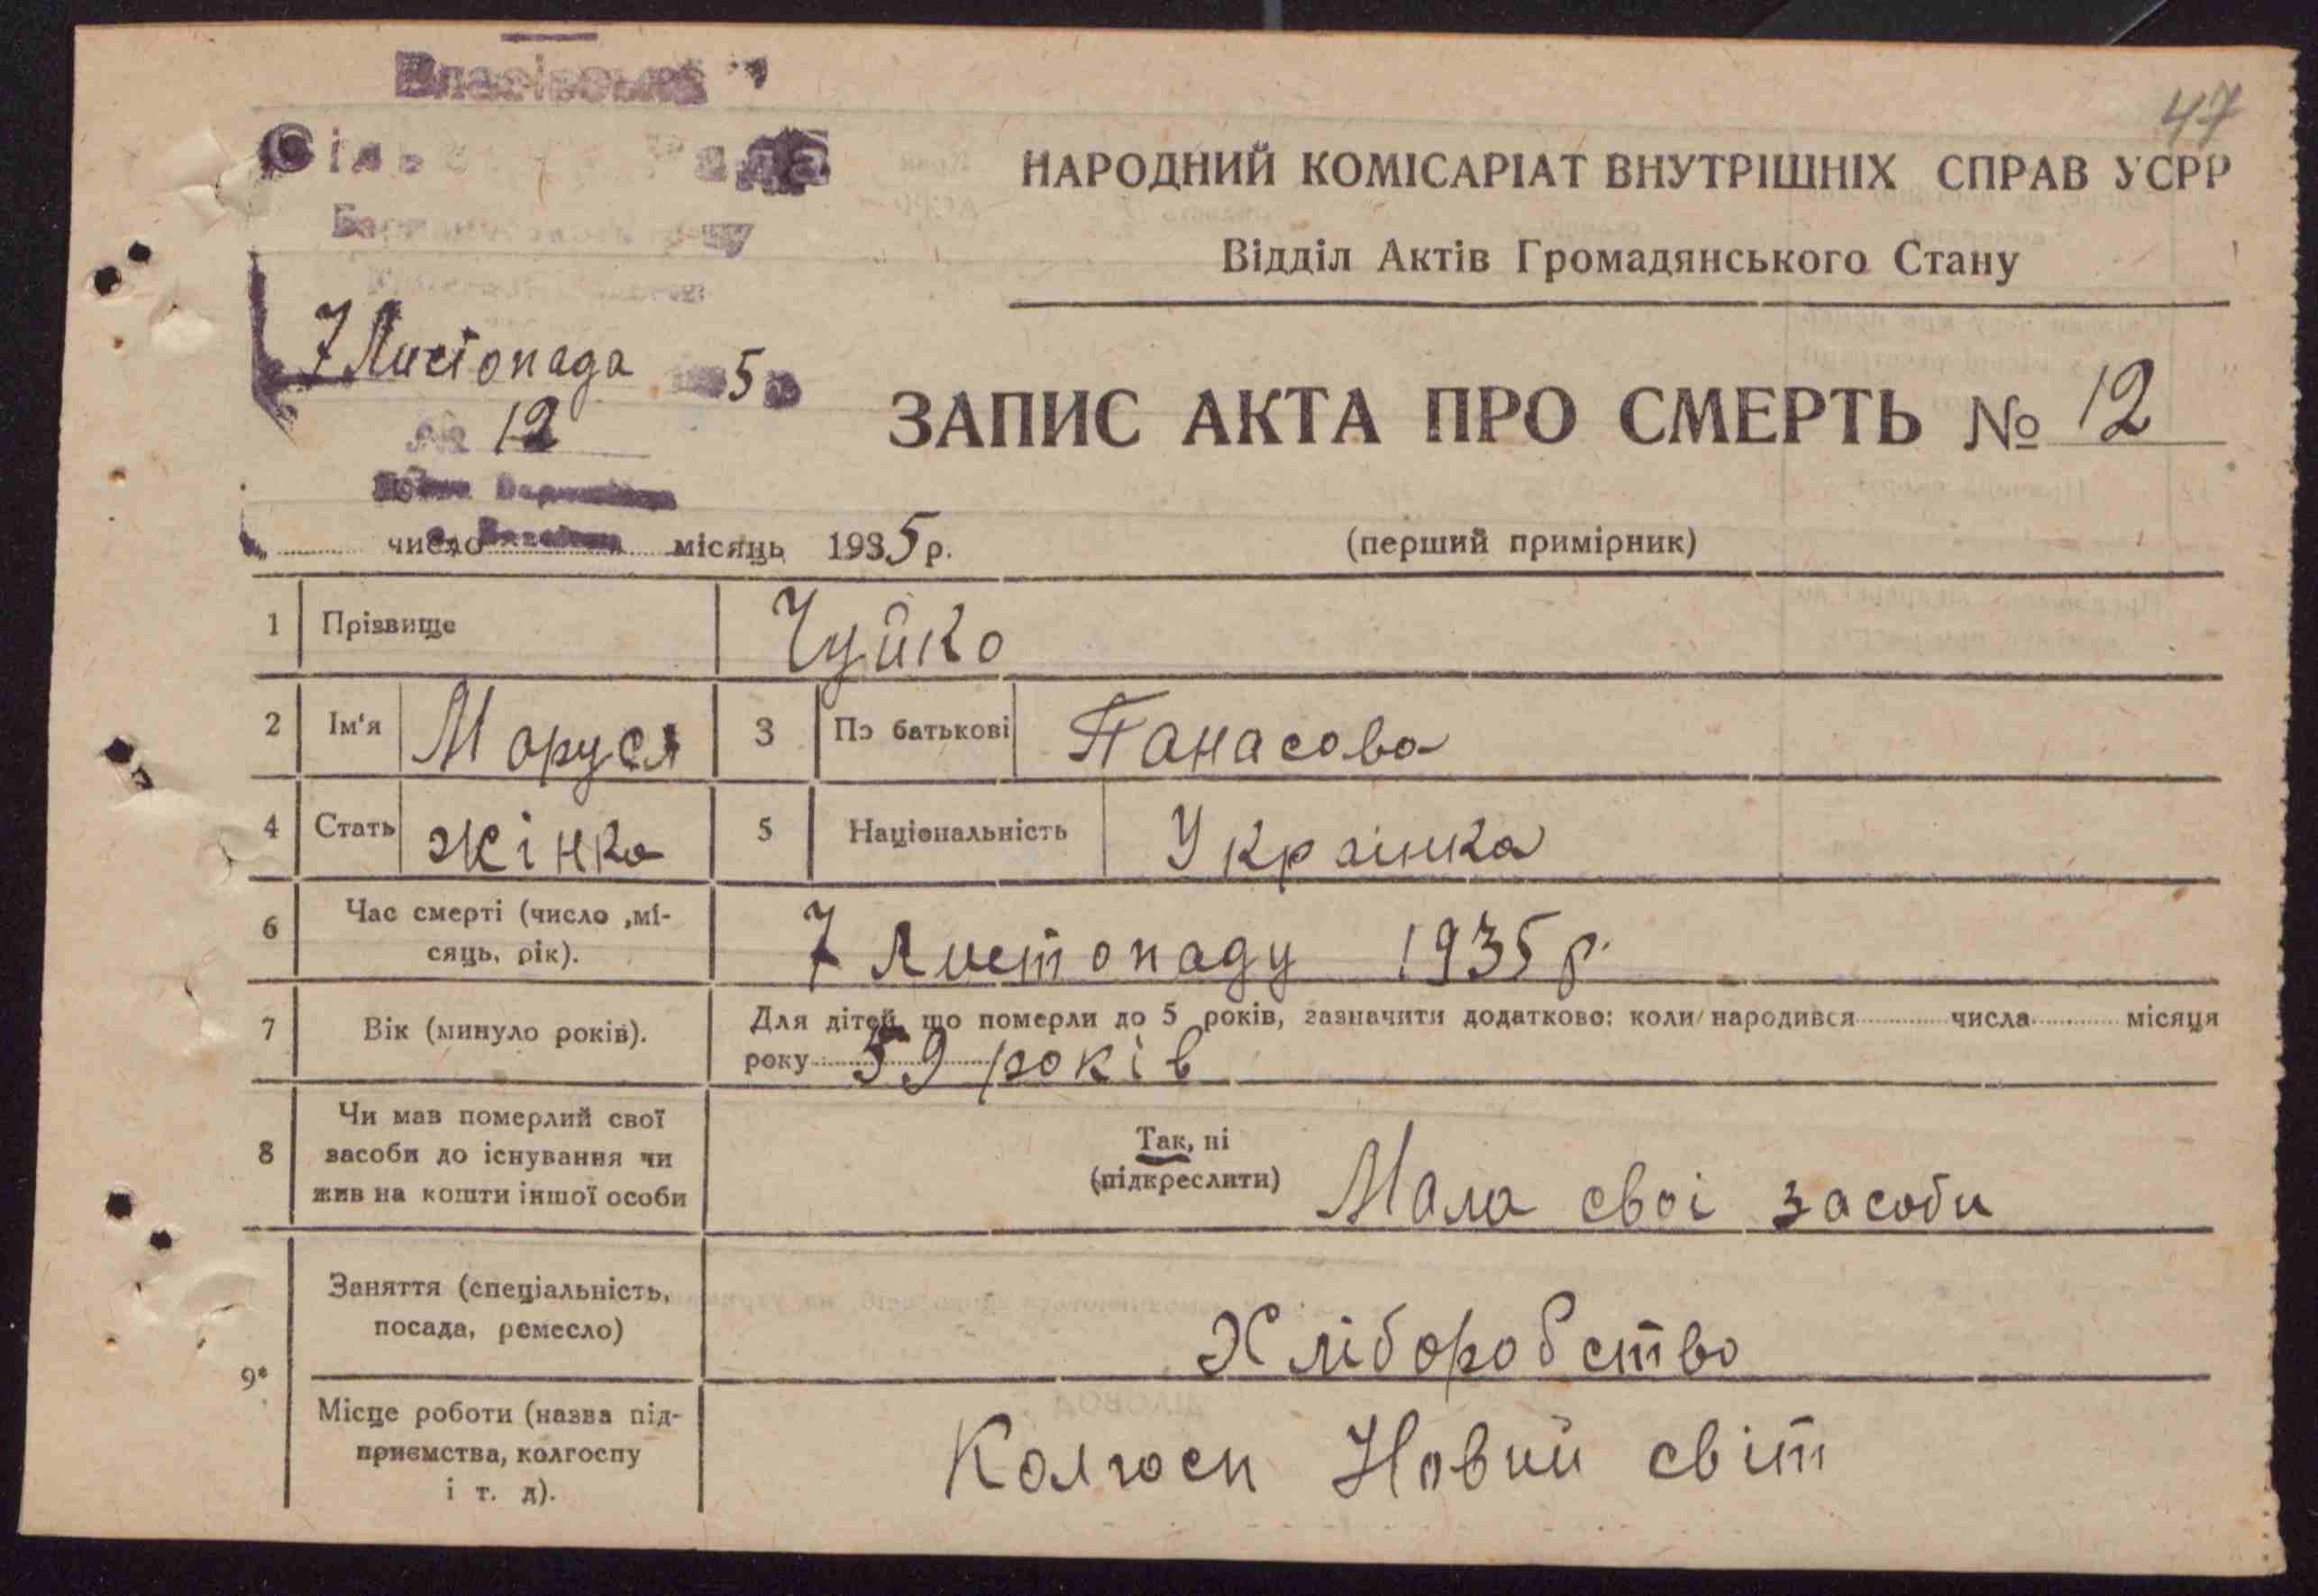 47
Власівська
НАРОДНИЙ КОМІСАРІАТ ВНУТРІШНІХ СПРАВ УСРР
Відділ Актів Громадянського Стану
7 Листопада 5
№ 12
ЗАПИС АКТА ПРО СМЕРТЬ № 12
число місяць 1935 р.
(перший примірник)
1 Прізвище Чуйко
2 Ім'я Маруся 3 По батькові Панасова
4 Стать жінка 5 Національність Українка
6 Час смерті (число ,мі-
сяць, рік).
7 Листопаду 1935 р.
7 Вік (минуло років).
Для дітей, що померли до 5 років, зазначити додатково: коли народився числа місяця
року 59 років
8 Чи мав померлий свої
засоби до існування чи
жив на кошти іншої особи
Так, ні
(підкреслити) Мала свої засоби
9*
Заняття (спеціальність,
посада, ремесло)
Хліборобство
Місце роботи (назва під-
приємства, колгоспу
і т. д).
Колгосп Новий світ